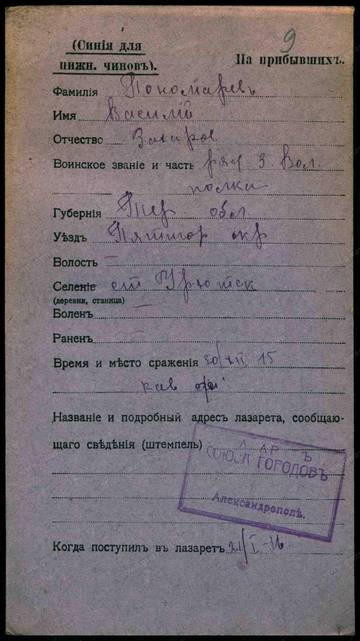 9
(Синія для
нижн. чиновъ).
На прибывшихъ.
Фамилія Пономаревъ
Имя Василій
Отчество Захаров
Воинское званіе и часть ряд 3 Вол.
полка
Губернія Тер обл
Уѣздъ Пятигор окр
Волость —
Селеніе ст
(деревня, станица) —
Боленъ
Раненъ —
Время и мѣсто сраженія 30/XII 15
кав
Названіе и подробный адресъ лазарета, сообщаю-
щаго свѣдѣнія (штемпель)
СОЮЗА ГОРОДОВЪ
Александрополь.
Когда поступил въ лазаретъ 21/I-16